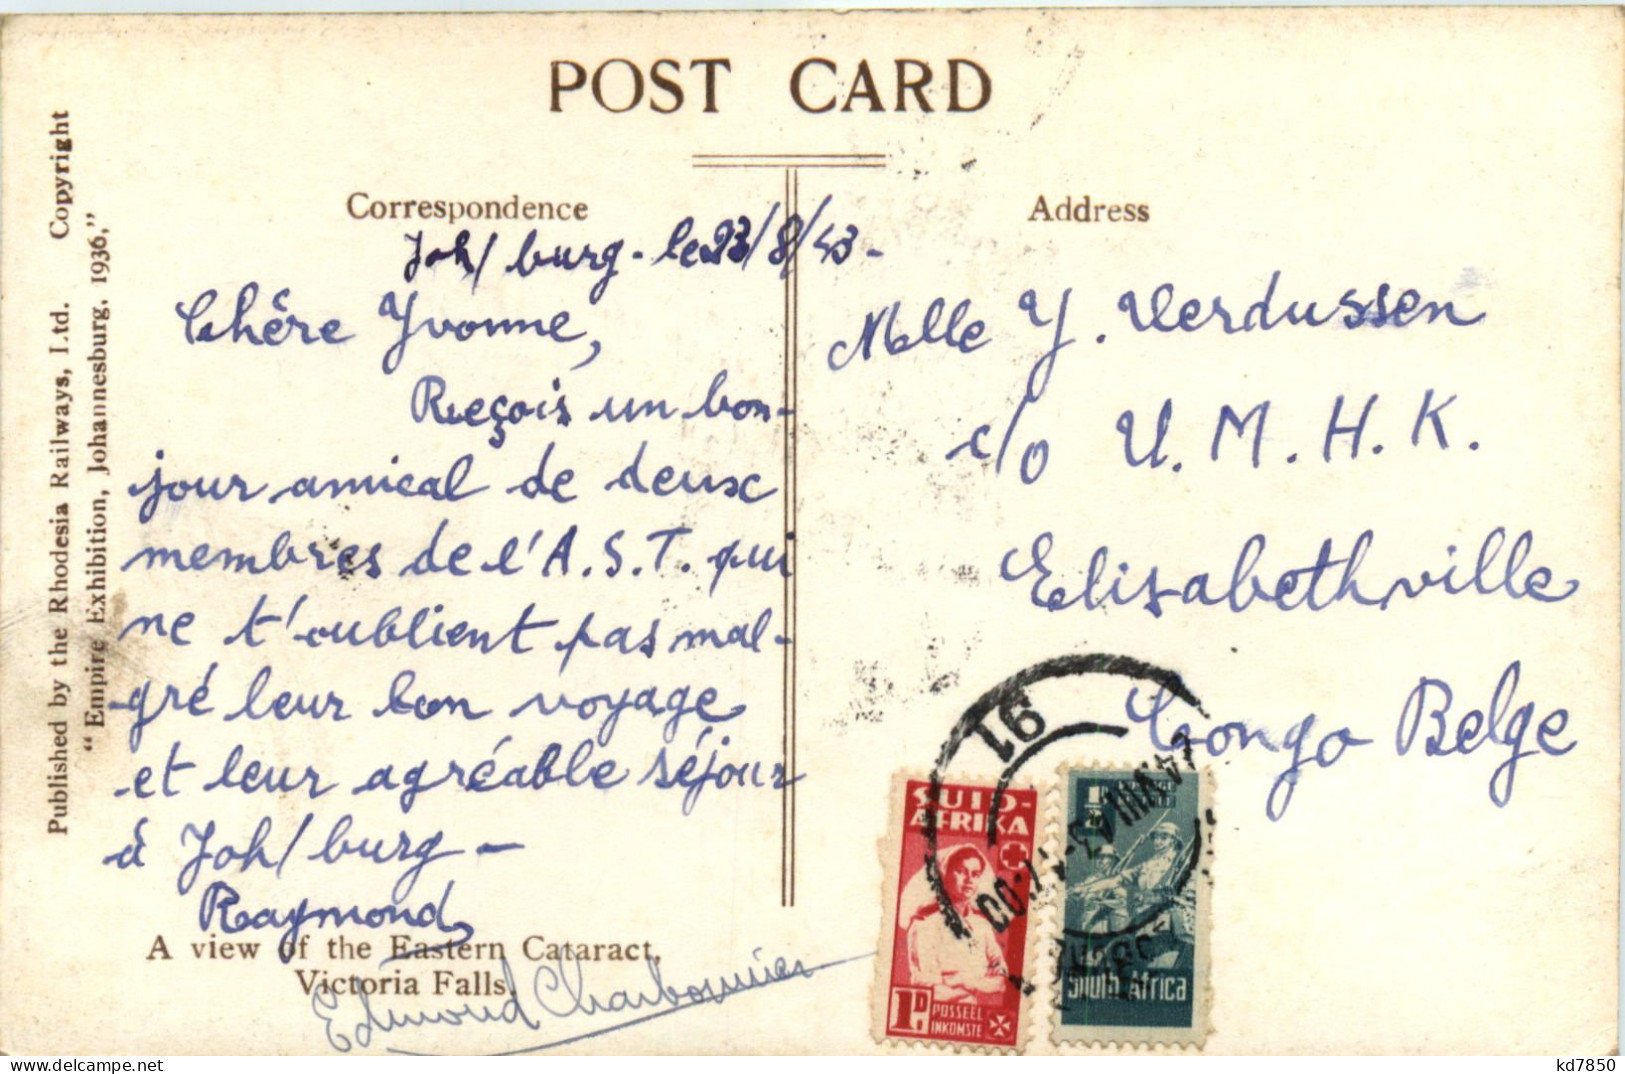 POST CARD
Correspondence
Address
Published by the Rhodesia Railways, Ltd. Copyright
"Empire Exhibition, Johannesburg, 1936,"
Joh/burg - le 23/8/43 -
Chère Yvonne,
Reçois un bon-
jour amical de deux
membres de l'A.S.T. qui
ne t'oublient pas mal-
gré leur bon voyage
et leur agréable séjour
à Joh/burg -
Raymond
A view of the Eastern Cataract,
Victoria Falls.
Edmond Charbonnier
Melle Y. Verdussen
c/o U.M.H.K.
Elisabethville
Congo Belge
16
SUID-
AFRIKA
1D.
POSSEËL
INKOMSTE
South Africa
kd7850